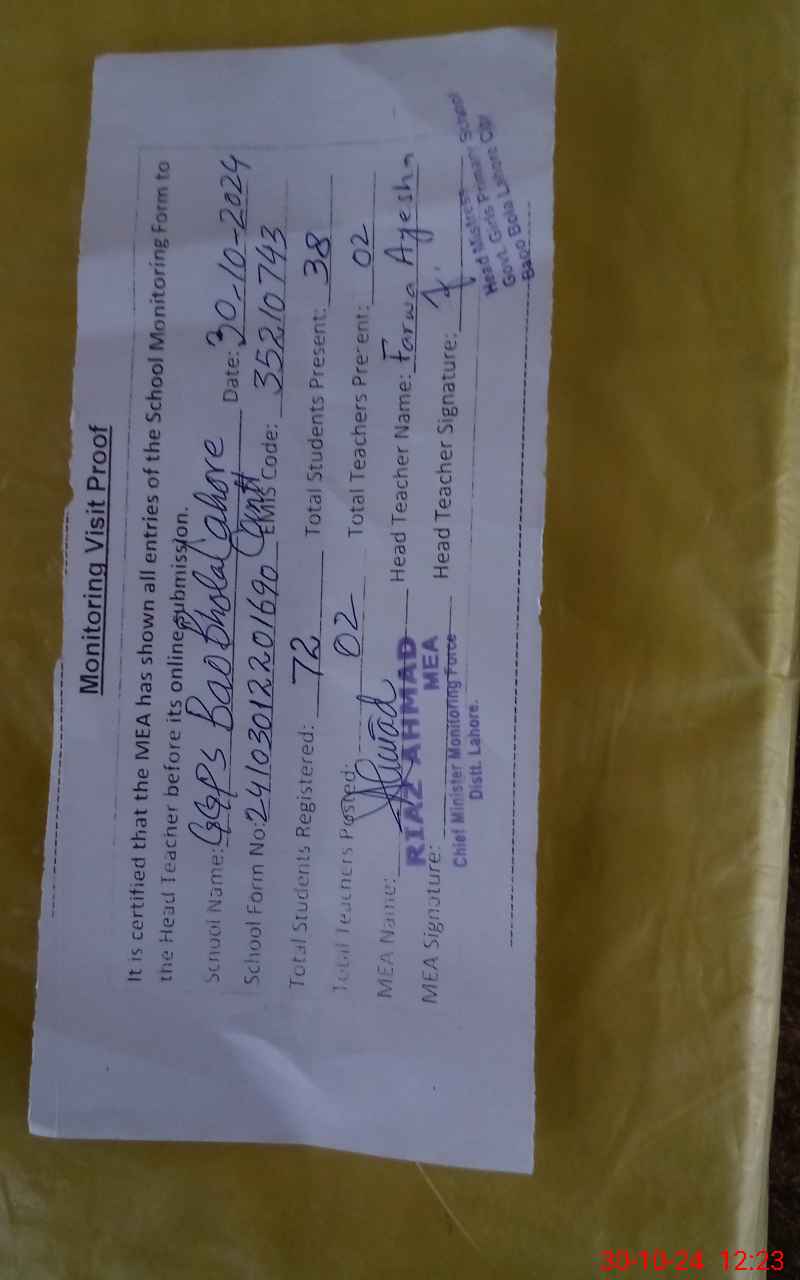 Monitoring Visit Proof
It is certified that the MEA has shown all entries of the School Monitoring Form to
the Head Teacher before its online submission.
School Name: GGPS Bao Bhola Lahore Cantt Date: 30-10-2024
School Form No: 24103012201690 EMIS Code: 35210743
Total Students Registered: 72 Total Students Present: 38
Total Teachers Posted: 02 Total Teachers Present: 02
MEA Name: RIAZ AHMAD Head Teacher Name: Farwa Ayesha
MEA
MEA Signature: Head Teacher Signature:
Chief Minister Monitoring Force
Distt. Lahore.
Head Mistress
Govt. Girls Primary School
Baoo Bola Lahore City
30-10-24 12:23